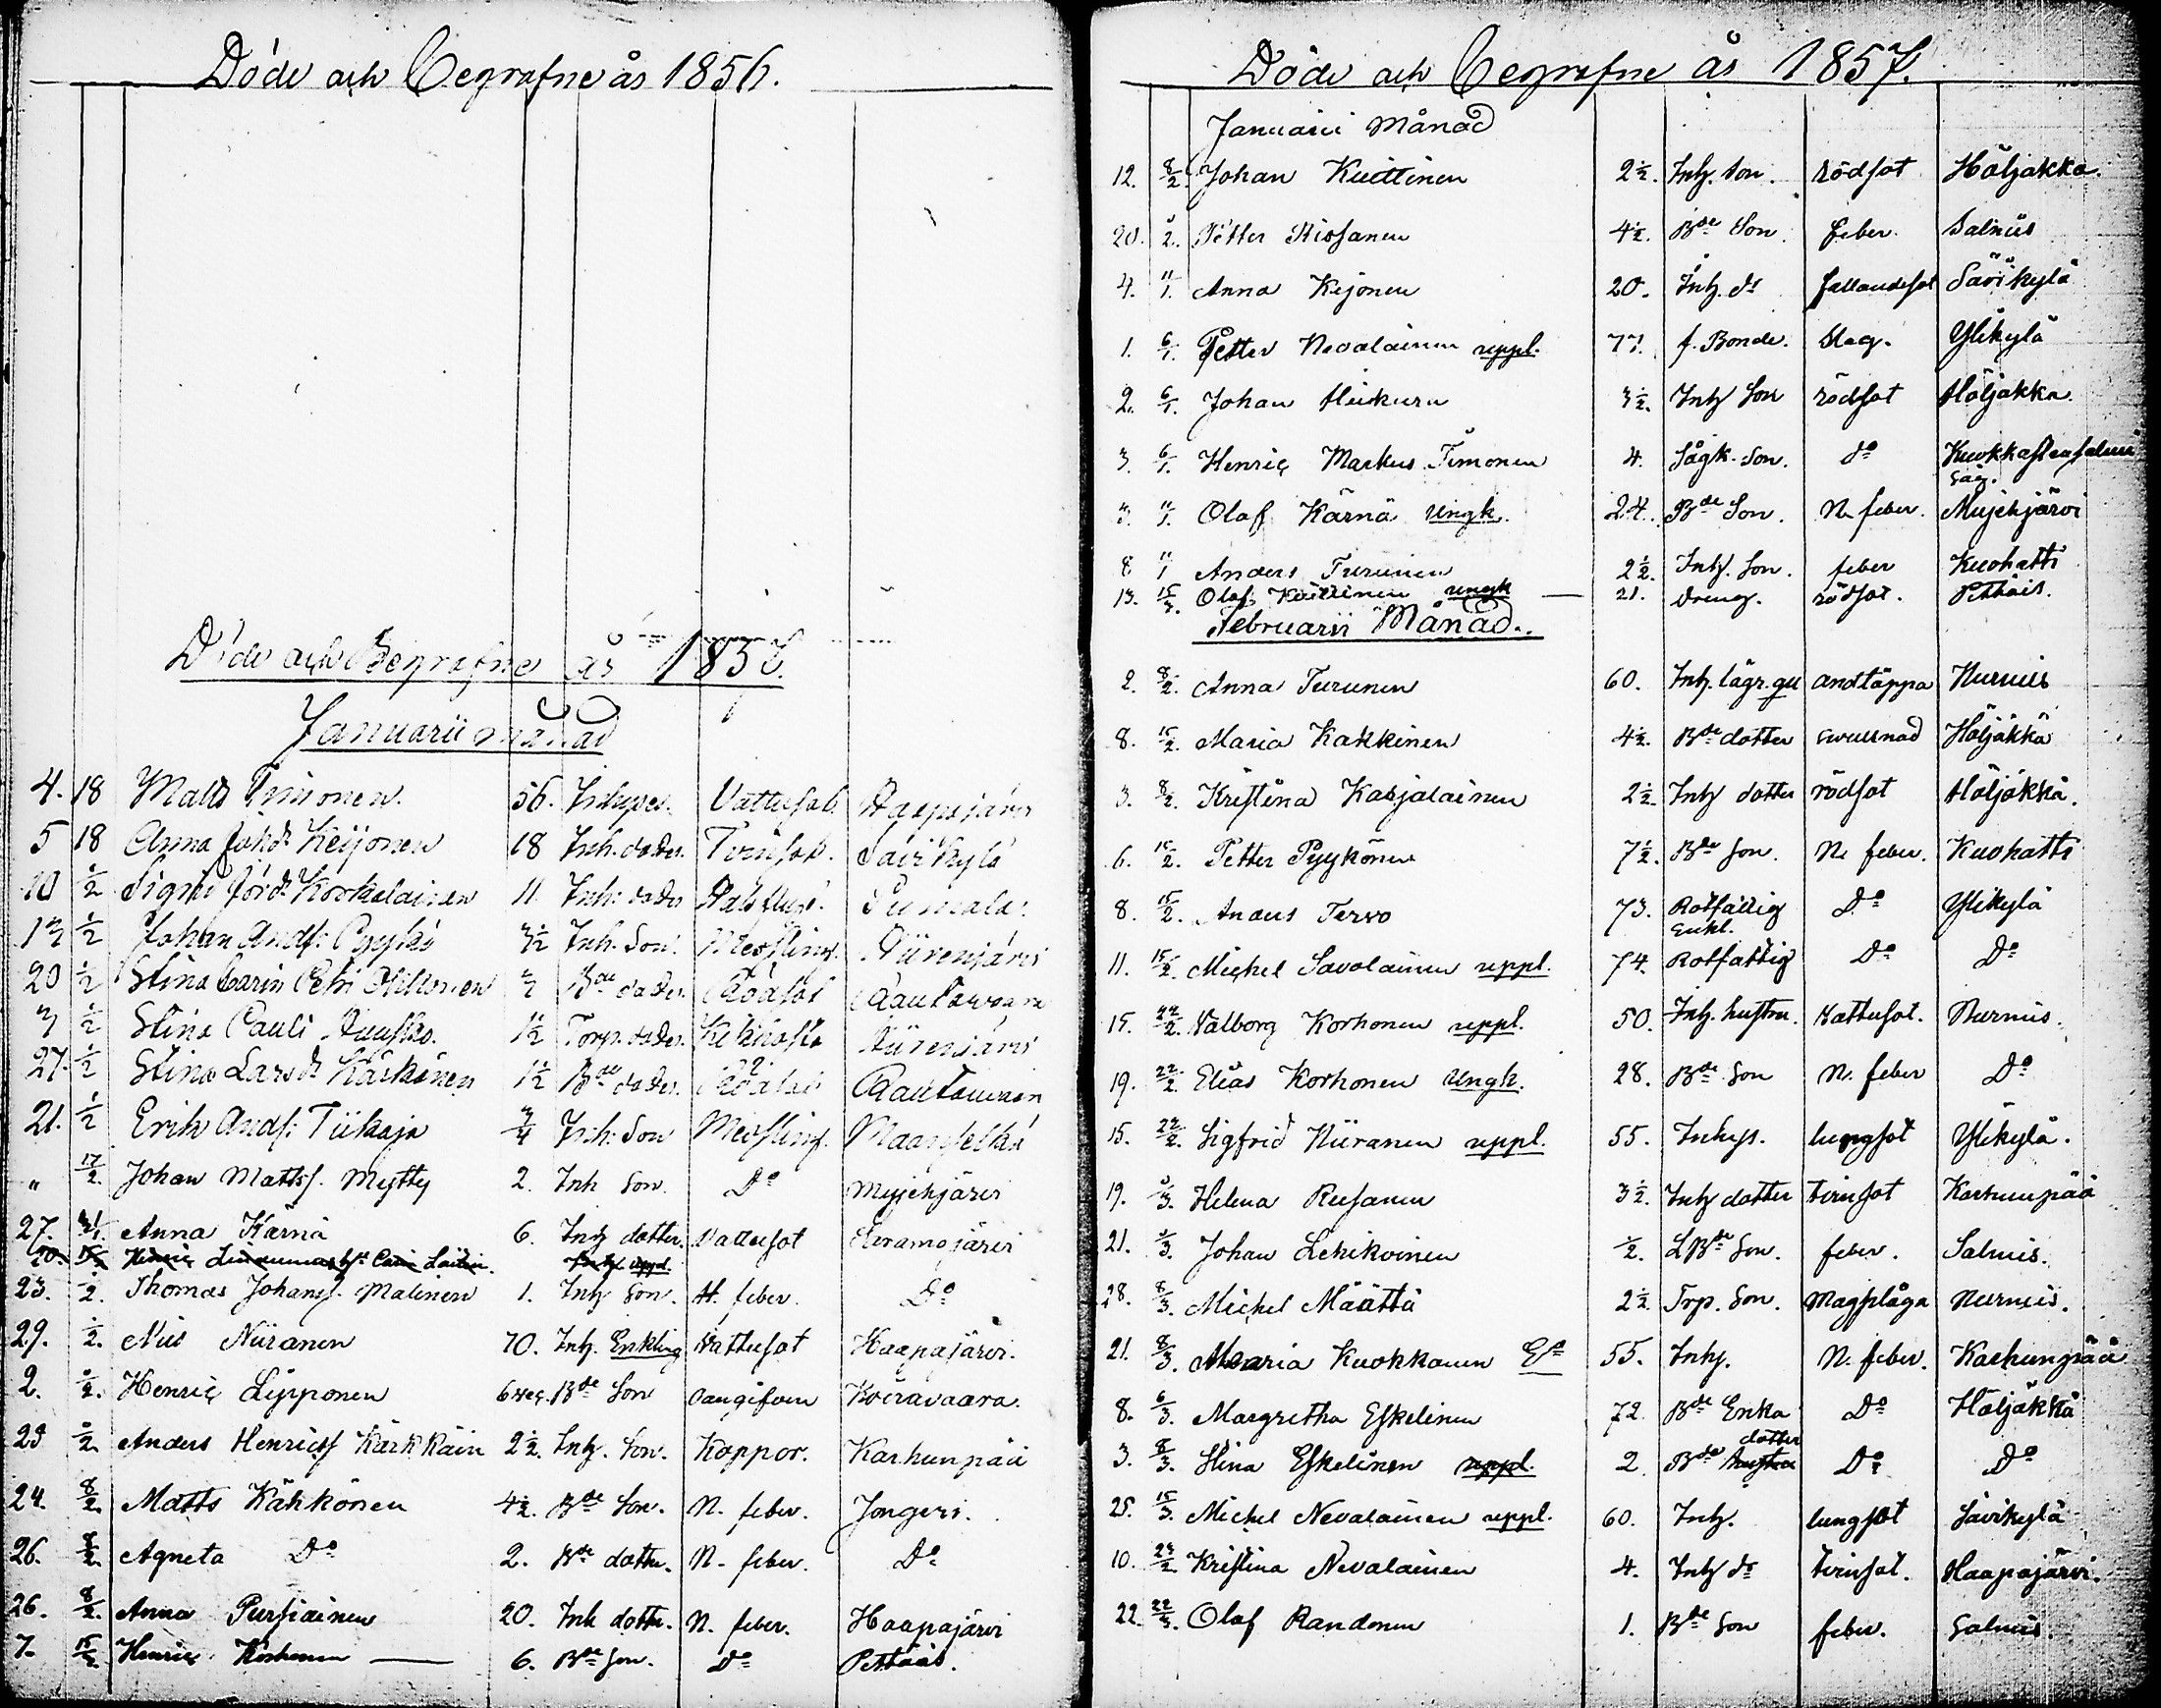 Döde och Begrafne år 1856.
Döde och Begrafne år 1857.
Januarii månad
4. 18 Matts Timonen. 56. Inhyses. Vattusot. Haapajärvi
5 18 Anna Johd. Keijonen 18 Inh. dotter. Tvinsot. Savikylä
10 1/2 Signi Korkalainen 11. Inh: dotter
1/2 Johan Ands: Pyykö 3 1/2 Inh. Son. Messling. Niirenjärvi
20 1/2 Stina Carin Petri Bde dotter. Rödsot Rautavaara
1/2 Stina Pauli 1 1/2 Torp. dotter. Kikhosta Niirenjärvi
27. 1/2 Stina Larsdr. Kärkönen 1 1/2 Bde dotter. Rödsot Rautavaara
21. 1/2 Erik Ands: Tiikaja 3/4 Inh: Son Messling. Maanselkä
" 17/2. Johan Mattss. Mytty 2. Inh Son. Do Mujehjärvi
27. 31/1. Anna Kärnä 6. Inh dotter. Vattusot
23. 1/2. Thomas Johanss. Malinen 1. Inh Son. H. feber. Do
29. 1/2. Nils Niiranen 70. Inh. Enkling Vattusot Haapajärvi.
2. 1/2. Henric Lipponen 6 vec. Bde Son oangifven Koiravaara.
23 1/2 Anders Henricss Kärkkäin 2 1/2. Inh. Son. Koppor. Karhunpää
24. 8/2. Matts Käkkönen 4 1/2. Bde Son. N. feber. Jongeri.
26. 8/2 Agneta Do 2. Bde dotter. N. feber. Do
26. 8/2. Anna Pursiainen 20. Inh dotter. N. feber. Haapajärvi
7. 15/2 Henric Korhonen — 6. Bde Son. Do Pettäis.
Döde och Begrafne år 1857.
Januarii Månad
12. 8/2. Johan Kuittinen 2 1/2. Inh. Son. rödsot Höljäkkä.
20. 2. Petter Riossanen 4 1/2. Bde Son. feber. Salmis
4. 11/1. Anna Kejonen 20. Inh. dr fallandesot Savikylä
1. 6/1. Petter Nevalainen uppl. 77. f. Bonde. slag. Ylikylä
2. 6/1. Johan Heikura 3 1/2. Inh Son rödsot Höljäkkä.
3. 6/1. Henric Markus Timonen 4. Sågk. Son. do Kuokkastensalmi
såg.
3. 11/1. Olof Kärnä Ungk. 24. Bde Son. N. feber. Mujehjärvi
8. 11/1 Anders Turunen 2 1/2. Inh. Son. feber Kuohatti
13. 15/3. Olof Kuittinen ungk — 21. Dreng. rödsot. Pettäis.
Februarii Månad.
2. 8/2. Anna Turunen 60. Inh. lägr. qu andtäppa Nurmis
8. 15/2. Maria Kakkinen 4 1/2. Bde dotter svullnad Höljäkkä
3. 8/2. Kristina Karjalainen 2 1/2. Inh dotter rödsot Höljäkkä.
6. 15/2. Petter Pyykönen 7 1/2. Bde Son. N. feber. Kuohatti
8. 15/2. Anders Tervo 73. Rotfattig Do Ylikylä
Enkl.
11. 15/2. Michel Savolainen uppl. 74. Rotfattig Do Do
15. 22/2. Valborg Korhonen uppl. 50. Inh. hustru. Vattusot. Nurmis.
19. 22/2. Elias Korhonen Ungk. 28. Bde Son N. feber Do
15. 22/2. Sigfrid Niiranen uppl. 55. Inhys. lungsot Ylikylä.
19. 1/3. Helena Reesanen 3 1/2. Inh dotter tvinsot Karhunpää
21. 1/3. Johan Lehikoinen 1/2. LBde Son. feber. Salmis.
28. 8/3. Michel Määttä 2 1/2. Trp. Son. magplåga Nurmis.
21. 8/3. Maria Kuokkanen Ea 55. Inhs. N. feber. Karhunpää
8. 6/3. Margretha Eskelinen 72. Bde Enka Do Höljäkkä
dotter
3. 8/3. Stina Eskelinen uppl. 2. Bde hustru Do Do
25. 15/3. Michel Nevalainen uppl. 60. Inh. lungsot Savikylä
10. 22/2 Kristina Nevalainen 4. Inh dr tvinsot. Haapajärvi.
22. 22/3. Olof Randonen 1. Bde Son feber. Salmis.